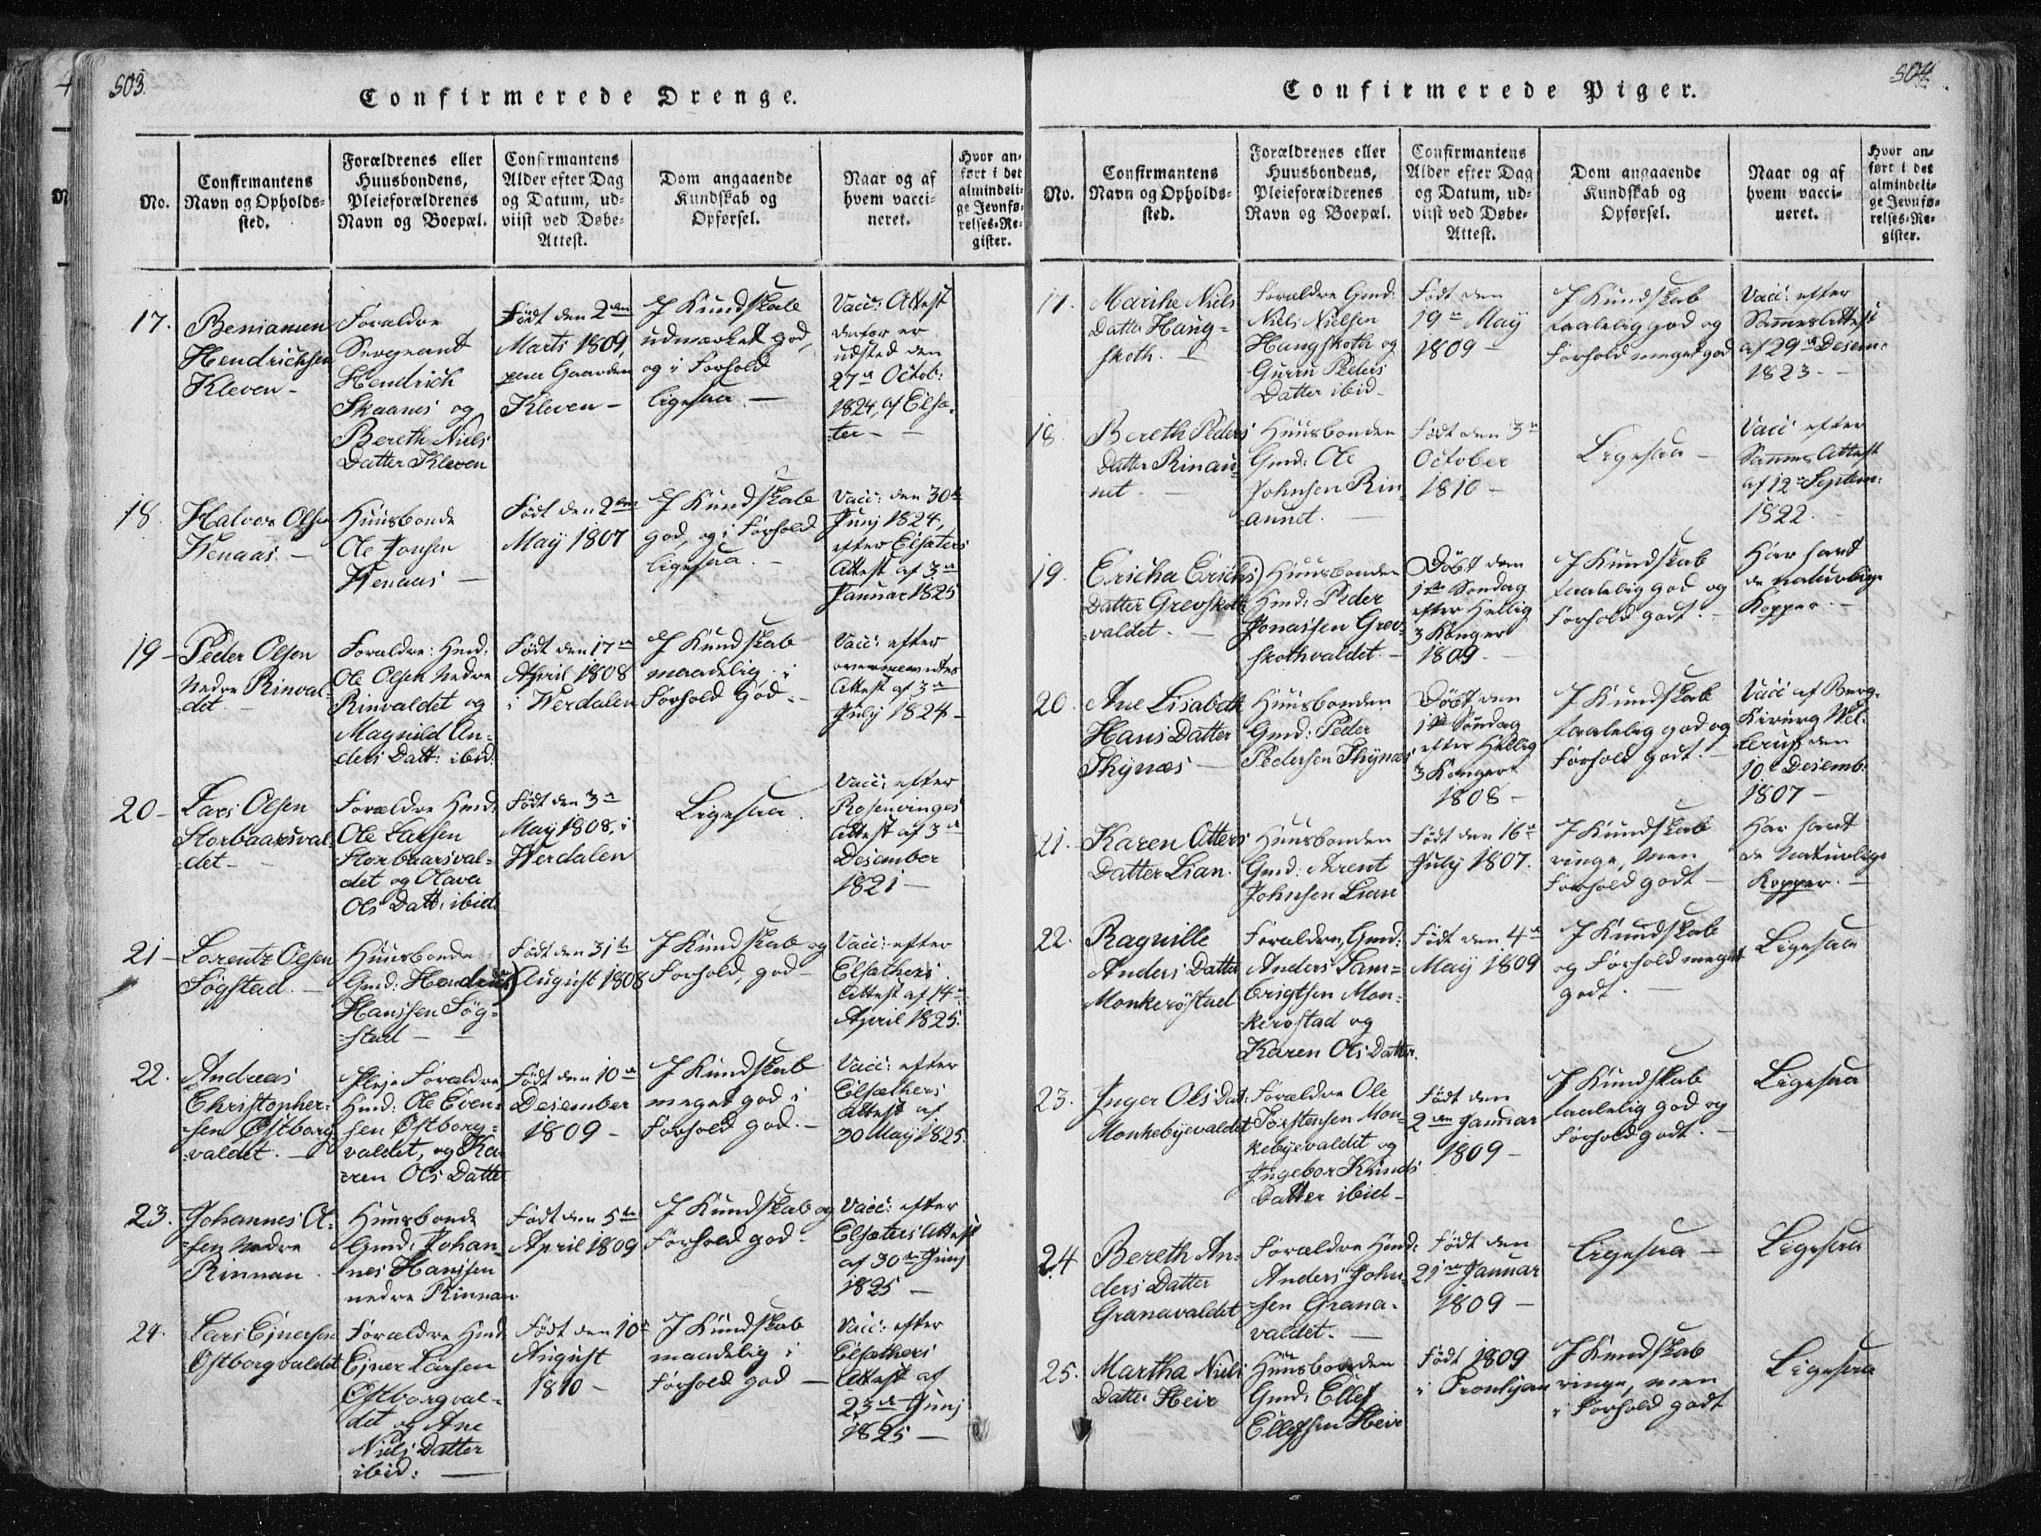 503.
Confirmerede Drenge.
No.
Confirmantens
Navn og Opholds-
sted.
Forældrenes eller
Huusbondens,
Pleieforældrenes
Navn og Boepæl.
Confirmantens
Alder efter Dag
og Datum, ud-
viist ved Døbe-
Attest.
Dom angaaende
Kundskab og
Opførsel.
Naar og af
hvem vacci-
neret.
Hvor an-
ført i det
almindeli-
ge Jevnfø-
relses-Re-
gister.
17.
Beniamen
Hendrichsen
Kleven-
Foraldre
Sergeant
Hendrich
Skaanes og
Bereth Niels
Datter Kleven
Født den 2den
Marti 1809,
paa Gaarden
Kleven-
I Kundskab
udmærket god,
og i Forhold
ligesaa.
Vacc: Attest
derfor er
udsted den
27de Octob:
1824, af Elsæ-
ter-
18.
Halvor Olsen
Wenaas.
Huusbonde
Ole Jonsen
Wenaas
Født den 2den
May 1807
I Kundskab
god, og i Forhold
ligesaa.
Vacc: den 30te
Junj 1824,
efter Elsæters
Attest af 3de
Januar 1825
19-
Peder Olsen
Nedre Rinval-
det.
Foraldre: Hmd:
Ole Olsen Nedre
Rinvaldet og
Magnild An-
ders Datt: ibid.
Født den 17de
April 1808
i Werdalen
I Kundskab
maadelig, i
Forhold God.
Vacc: efter
overmeldtes
Attest af 3de
July 1824-
20-
Lars Olsen
Storbaarsval-
det-
Forældre Hmd:
Ole Larsen
Storbaarsval-
det og Olava
Ols Datt: ibid:
Født den 3de
May 1808, i
Werdalen
Ligesaa.
Vacc: efter
Rosenvinges
Attest af 3de
Desember
1821-
21-
Lorentz Olsen
Søgstad.
Huusbonde
Gmd: Hendrich
Hanssen Søg-
stad
Født den 31te
August 1808
I Kundskab og
Forhold, god-
Vacc: efter
Elsæthers
Attest af 14de
April 1825.
22.
Andreas
Christopher-
sen Østborg-
valdet.
Pleje Forældre
Hmd: Ole Even-
sen Østborg-
valdet, og Ka-
ren Ols Datter
Født den 10de
Desember
1809-
I Kundskab
meget god i
Forhold god.-
Vacc: efter
Elsæthers
Attest af
30 May 1825.
23.
Johannes Ol-
sen Nedre
Rinnan.
Huusbonde
Gmd: Johan-
nes Hanssen
nedre Rinnan
Født den 5te
April 1809
I Kundskab og
Forhold god-
Vacc: efter
Elsæters Attest
af 30te Junj
1825-
24.
Lars Ejnersen
Østborgvaldet
Forældre Hmd
Ejner Larsen
Østborgval-
det og Ane
Niels Datter
ibid:
Født den 10de
August
1810-
I Kundskab
maadelig i
Forhold god
Vacc: efter
Elsæthers
Attest af
23de Junj
1825-
504.
Confirmerede Piger.
No.
Confirmantens
Navn og Opholds-
sted.
Forældrenes eller
Huusbondens,
Pleieforældrenes
Navn og Boepæl.
Confirmantens
Alder efter Dag
og Datum, ud-
viist ved Døbe-
Attest.
Dom angaaende
Kundskab og
Opførsel.
Naar og af
hvem vacci-
neret.
Hvor an-
ført i det
almindeli-
ge Jevnfø-
relses-Re-
gister.
17.
Marihe Niels
Datter Haug-
skoth.
Foraldre Gmd:
Niels Nielsen
Haugskoth og
Gurru Peders
Datter ibid-
Født den
19de May
1809-
I Kundskab
taalelig god og
Forhold meget god
Vacc: efter
Sammes Attest
af 29de Desem-
1823-
18.
Bereth Peders
Datter Rinau-
net.
Huusbonden
Gmd: Ole
Johnsen Rin-
aunet.
Født den 3de
October
1810-
Ligesaa-
Vacc: efter
Sammes Attest
af 12te Septem:
1822.
19.
Ericha Erichs
Datter Grevskoth-
valdet.
Huusbonden
Hmd: Peder
Jonassen Grev-
skothvaldet.
Døbt den
1ste Søndag
efter Hellig
3 Konger
1809.
I Kundskab
taalelig god og
Forhold godt.
Har havt
de naturlige
Kopper.
20.
Ane Lisabeth
Hans Datter
Thynæs
Huusbonden
Gmd: Peder
Pedersen Thynæs
Døbt den
1ste Søndag
efter Hellig
3 Konger
1808-
I Kundskab
taalelig god og
Forhold godt.
Vacc af Berg-
Kirurg
den
10de Desemb:
1807-
21.
Karen Otters
Datter Lian.
Huusbonden
Gmd: Arent
Johnsen Lian
Født den 16de
July 1807.
I Kundskab
ringe, men
Forhold godt-
Har havt
de Naturlige
Kopper.-
22.
Ragnille
Anders Datter
Monkerøstad
Forældre, Gmd:
Anders Lam-
brigtsen Mon-
kerøstad og
Karen Ols Datter.
Født den 4de
May 1809
I Kundskab
og Forhold meget
godt.
Ligesaa
23.
Inger Ols Dat:
Monkebyevaldet
Forældre Ole
Torstensen Mon-
kebyevaldet og
Ingebor Knuds
Datter ibid-
Født den
2den Januar
1809-
I Kundskab
taalelig god og
Forhold godt.
Ligesaa
24.
Bereth An-
ders Datter
Granavaldet
Forældre Hmd:
Anders John-
sen Grana-
valdet.
Født den
21de Januar
1809-
Ligesaa-
Ligesaa
25.
Martha Niels
Datter Heir
Huusbonden
Gmd: Ellef
Ellefsen Heir
Født 1809
i Tronhjem
I Kundskab
ringe, men
i Forhold godt
Ligesaa